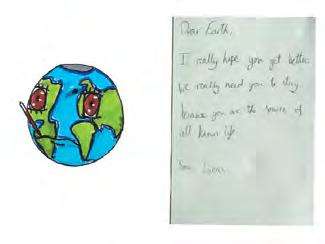 Dear Earth,
I really hope you get better.
We really need you to stay
because you are the source of
all known life.